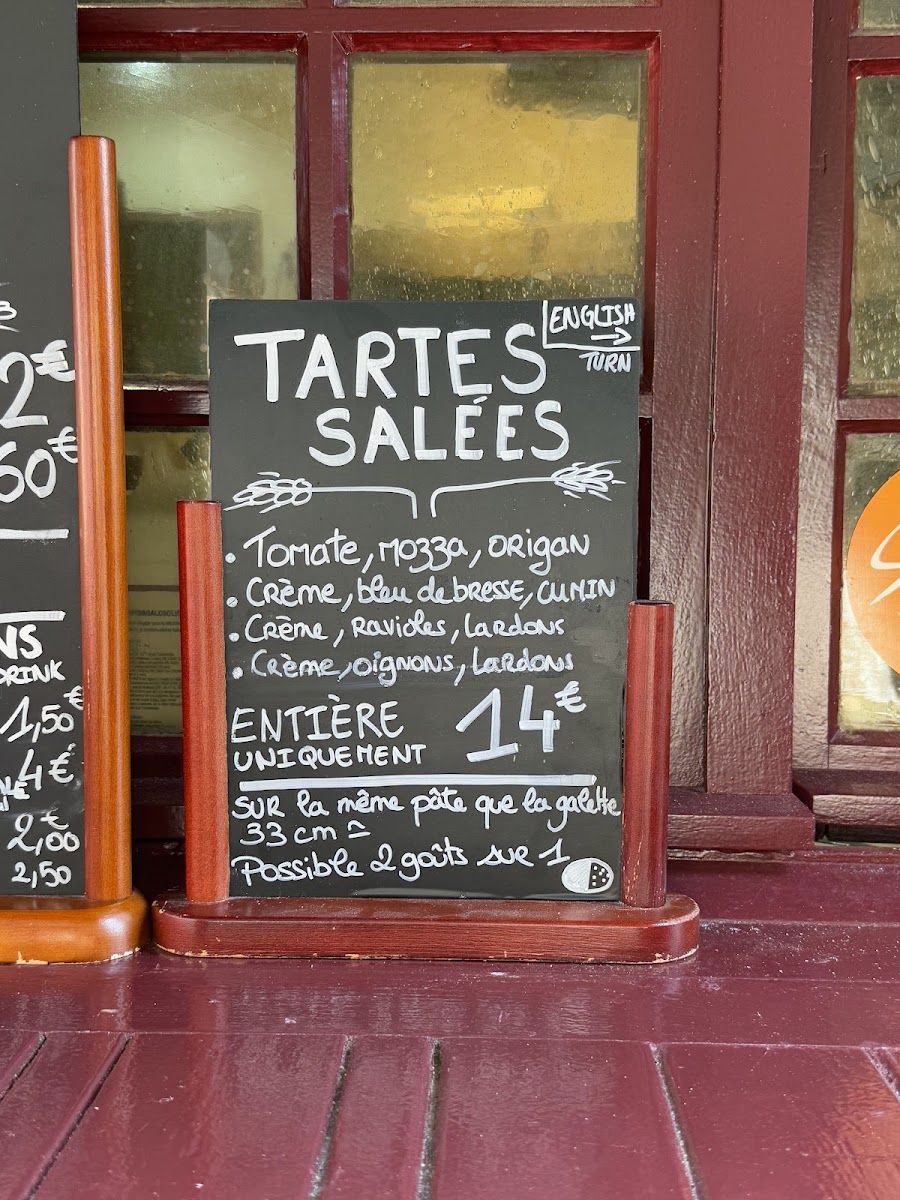 3
2€
50€
NS
DRINK
1,50€
4€
2,00€
2,50
TARTES
SALÉES
ENGLISH
→
TURN
• Tomate, mozza, origan
• Crème, bleu de bresse, cumin
• Crème, ravioles, lardons
• Crème, oignons, lardons
ENTIÈRE
UNIQUEMENT
14€
SUR la même pâte que la galette
33 cm ≃
Possible 2 goûts sur 1